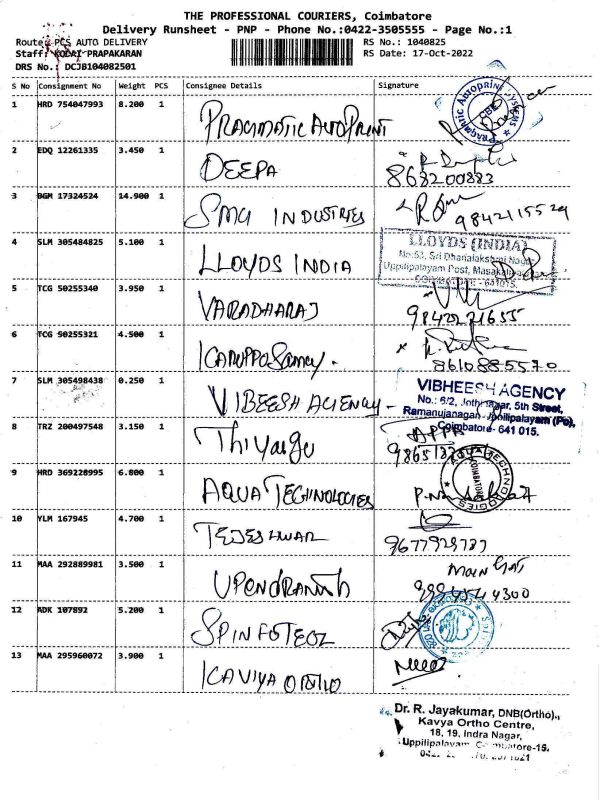 THE PROFESSIONAL COURIERS, Coimbatore
Delivery Runsheet - PNP - Phone No.:0422-3505555 - Page No.:1
Route: PCS AUTO DELIVERY
RS No.: 1040825
Staff: KODAI PRAPAKARAN
RS Date: 17-Oct-2022
DRS No.: DCJB104082501
S No Consignment No Weight PCS Consignee Details Signature
1 HRD 754047993 8.200 1 PRAGMATIC AUTOPRINT
2 EDQ 12261335 3.450 1 DEEPA
868200883
3 BGM 17324524 14.900 1 SMG INDUSTRIES
9842115529
4 SLM 305484825 5.100 1 LLOYDS INDIA
LLOYDS (INDIA)
No:53, Sri Dhanalakshmi Nagar
Uppilipalayam Post,
COIMBATORE - 641015.
5 TCG 50255340 3.950 1 VARADHARAJ
9842221655
6 TCG 50255321 4.500 1 KARUPPOSamy.
8610885570
7 SLM 305498438 0.250 1 VIBEESH AGENCY
VIBHEESH AGENCY
No.: 6/2, Jothi Nagar, 5th Street,
Ramanujanagar, Uppilipalayam (Po),
Coimbatore - 641 015.
8 TRZ 200497548 3.150 1 Thiyagu
9 HRD 369228995 6.800 1 AQUA TECHNOLOGIES
AQUA TECHNOLOGIES
COIMBATORE
10 YLM 167945 4.700 1 TEJESHWAR
9677929787
11 MAA 292889981 3.500 1 UPENDRANATH
9994544300
12 RDK 107892 5.200 1 SPINFOTECZ
13 MAA 295960072 3.900 1 KAVIYA ORTHO
Dr. R. Jayakumar, DNB(Ortho).,
Kavya Ortho Centre,
18, 19, Indra Nagar,
Uppilipalayam, Coimbatore-15.